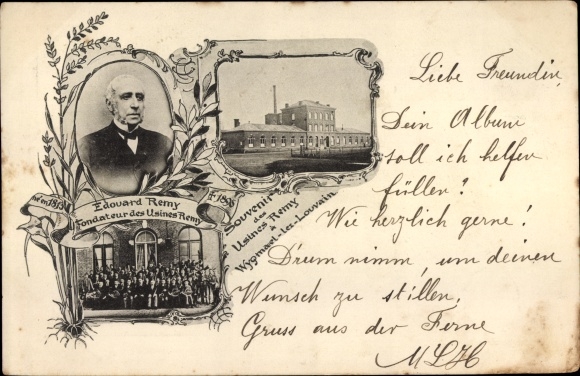 né en 1813
† 1896
Edouard Remy
Fondateur des Usines Remy
Souvenir
des
Usines Remy
à
Wygmael-lez-Louvain
Liebe Freundin,
Dein Album
soll ich helfen
füllen?
Wie herzlich gerne!
D'rum nimm, um deinen
Wunsch zu stillen,
Gruss aus der Ferne
MLH